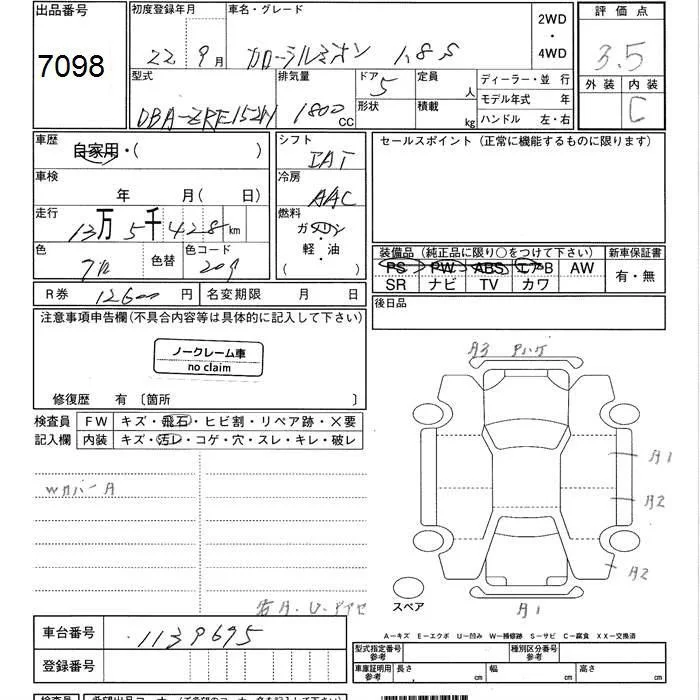 出品番号 初度登録年月 車名・グレード 2WD・4WD 評価点
7098 22年 9月 カローラルミオン 1.8S 3.5
型式 排気量 ドア 5 定員 人 ディーラー・並行 外装 内装
DBA-ZRE152N 1800CC 形状 積載 kg モデル年式 年 C
ハンドル 左・右
車歴 自家用・( ) シフト セールスポイント (正常に機能するものに限ります)
車検 年 月 ( 日) 冷房 AAC
走行 13万5千428km 燃料 ガソリン・軽・油 ( )
色 色替 色コード 209 装備品 (純正品に限り○をつけて下さい) 新車保証書
PS PW ABS エアB AW 有・無
SR ナビ TV カワ
R券 12600円 名変期限 月 日 後日品
注意事項申告欄(不具合内容等は具体的に記入して下さい)
ノークレーム車
no claim
修復歴 有 〔箇所 〕
検査員 FW キズ・飛石・ヒビ割・リペア跡・×要
記入欄 内装 キズ・汚レ・コゲ・穴・スレ・キレ・破レ
A3 Pハゲ
A1
WカバーA
A2
A2
スペア
A1
A−キズ E−エクボ U−凹み W−補修跡 S−サビ C−腐食 XX−交換済
車台番号 1139695
型式指定番号 参考 種別区分番号 参考
登録番号 車庫証明用 参考 長さ cm 幅 cm 高さ cm
検査員 希望出品コーナー